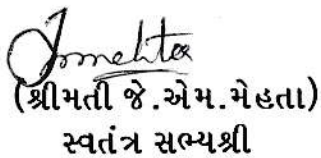 Jmmehta
(શ્રીમતી જે.એમ.મેહતા)
સ્વતંત્ર સભ્યશ્રી